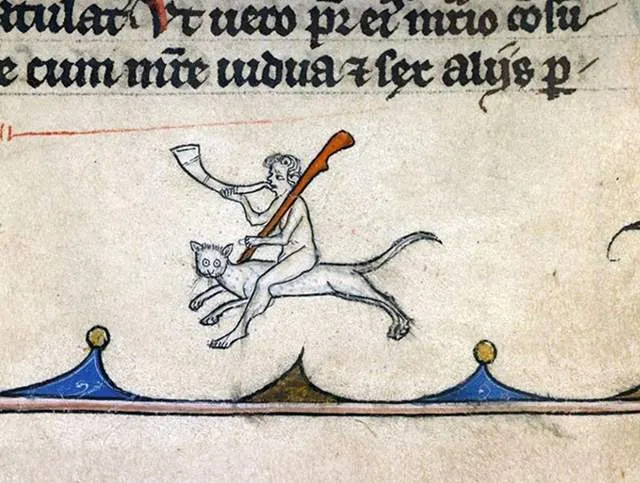 atulat Vt uero pr̄ ei cōsu
e cum mr̄e uidua ⁊ sex alijs p